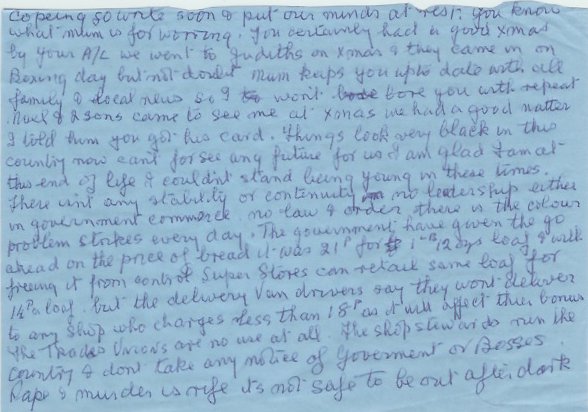 Copeing so write soon & put our minds at rest. you know
what mum is for worring. You certainly had a good xmas
by your A/L we went to Judiths on xmas & they came in on
Boxing day but not doubt Mum keeps you upto date with all
family & local news so I won't bore you with repeat
Noel & 2 sons came to see me at xmas we had a good natter
I told them you got his card. Things look very black in this
country now cant forsee any future for us & am glad I am at
this end of life & couldn't stand being young in these times.
There isnt any stability or continuity no leadership either
in government commerce. no law & order, there is the colour
problem strikes every day. The government have given the go
ahead on the price of bread it was 21P for 1 loaf & with
freeing it from control Super Stores can retail same loaf for
14P a loaf. but the delivery van drivers say they wont deliver
to any shop who charges less than 18P as it will affect their bonus
The Trades Unions are no use at all. The shopstewards run the
country & dont take any notice of Goverment or Bosses.
Rape & murder is rife its not safe to be out after dark